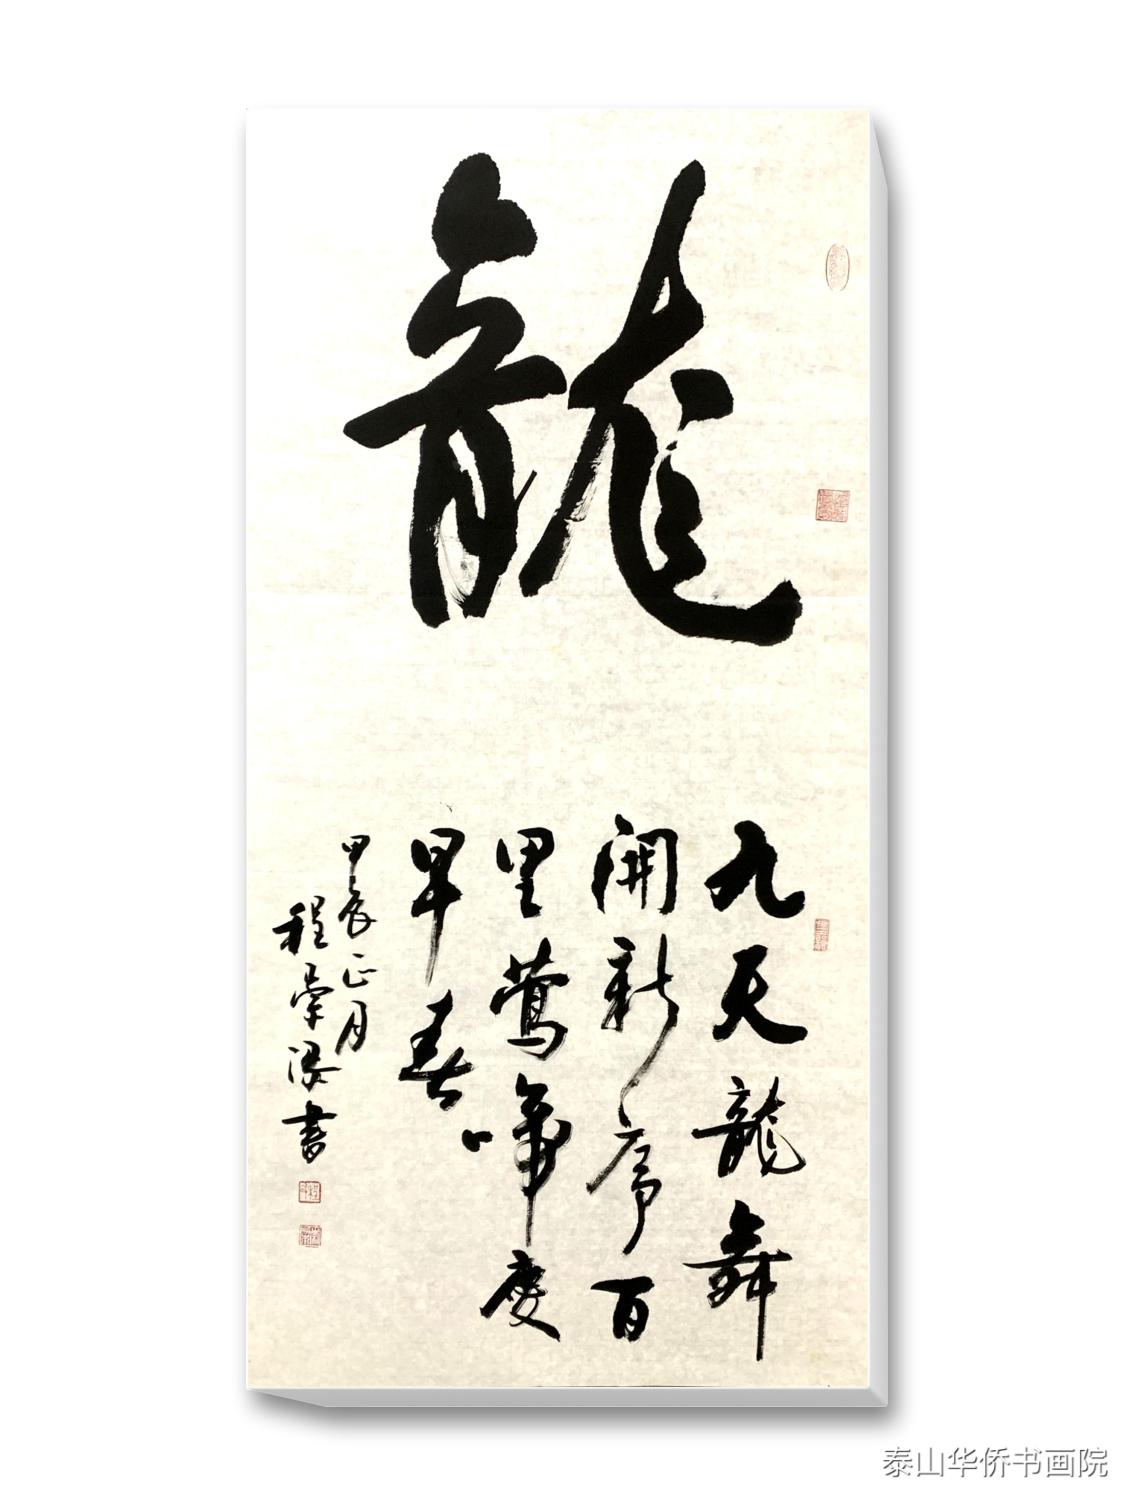 龍
九天龍舞
開新序百
里鶯啼度
早春
甲辰正月
程 書
泰山华侨书画院